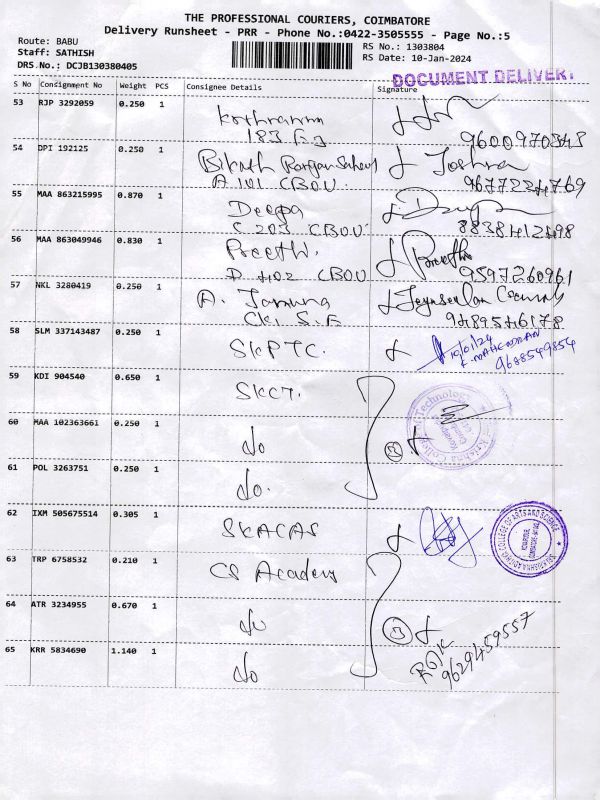 THE PROFESSIONAL COURIERS, COIMBATORE
Delivery Runsheet - PRR - Phone No.:0422-3505555 - Page No.:5
Route: BABU
Staff: SATHISH
DRS.No.: DCJB130380405
RS No.: 1303804
RS Date: 10-Jan-2024
DOCUMENT DELIVERY
S No Consignment No Weight PCS Consignee Details Signature
53 RJP 3292059 0.250 1
9600970343
54 DPI 192125 0.250 1
A 101 CBOU. 9677224769
55 MAA 863215995 0.870 1 Deepa
C 203 CBOU 8838412498
56 MAA 863049946 0.830 1 Preethi. Preethi
D 402 CBOU 9597260961
57 NKL 3280419 0.250 1 A. Jamuna
9489546178
58 SLM 337143487 0.250 1 SKPTC. 10/01/24
K. MAHENDRAN
9688549854
59 KDI 904540 0.650 1 SKCT.
60 MAA 102363661 0.250 1 do
3
61 POL 3263751 0.250 1 do.
62 IXM 505675514 0.305 1 SKACAS
SRI KRISHNA ADITHYA COLLEGE OF ARTS AND SCIENCE
63 TRP 6758532 0.210 1 CS Academy
64 ATR 3234955 0.670 1 do
3
65 KRR 5834690 1.140 1 do
9629459557